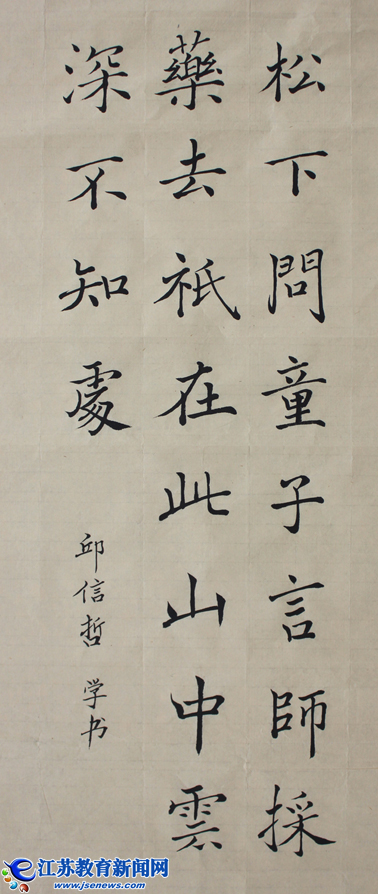 松下問童子言師採
藥去祇在此山中雲
深不知處
邱信哲 学书
江苏教育新闻网
www.jsenews.com